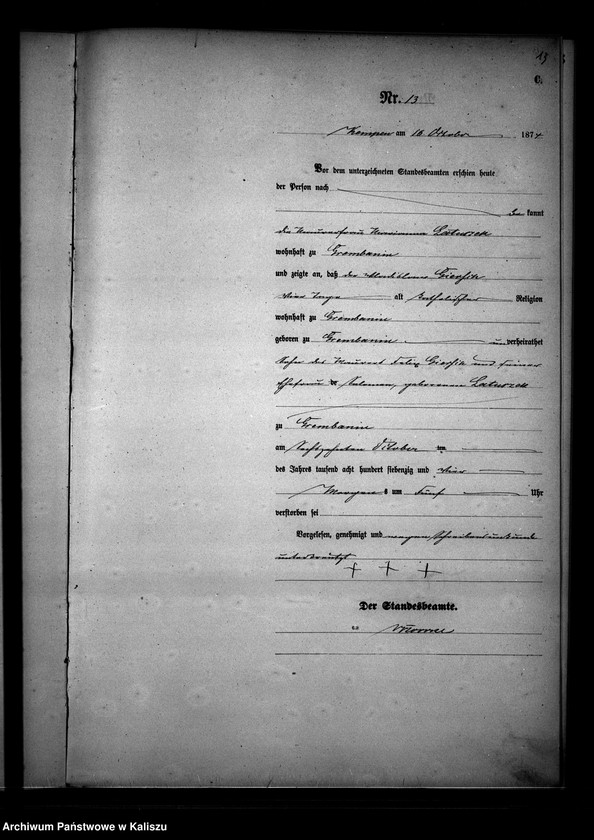 13
C.
Nr. 13
Kempen am 16 October 1874
Vor dem unterzeichneten Standesbeamten erschien heute
der Person nach
be kannt
die Maurerfrau Marianna
wohnhaft zu Grembanin
und zeigte an, daß der
vier Tage alt katholischer Religion
wohnhaft zu Grembanin
geboren zu Grembanin unverheirathet
Sohn des Felix und seiner
Ehefrau Salomea, geborenen
zu Grembanin
am sechszehnten October ten
des Jahres tausend acht hundert siebenzig und vier
Morgens um fünf Uhr
verstorben sei
Vorgelesen, genehmigt und wegen Schreibensunkunde
unterkreuzt
+ + +
Der Standesbeamte.
Archiwum Państwowe w Kaliszu